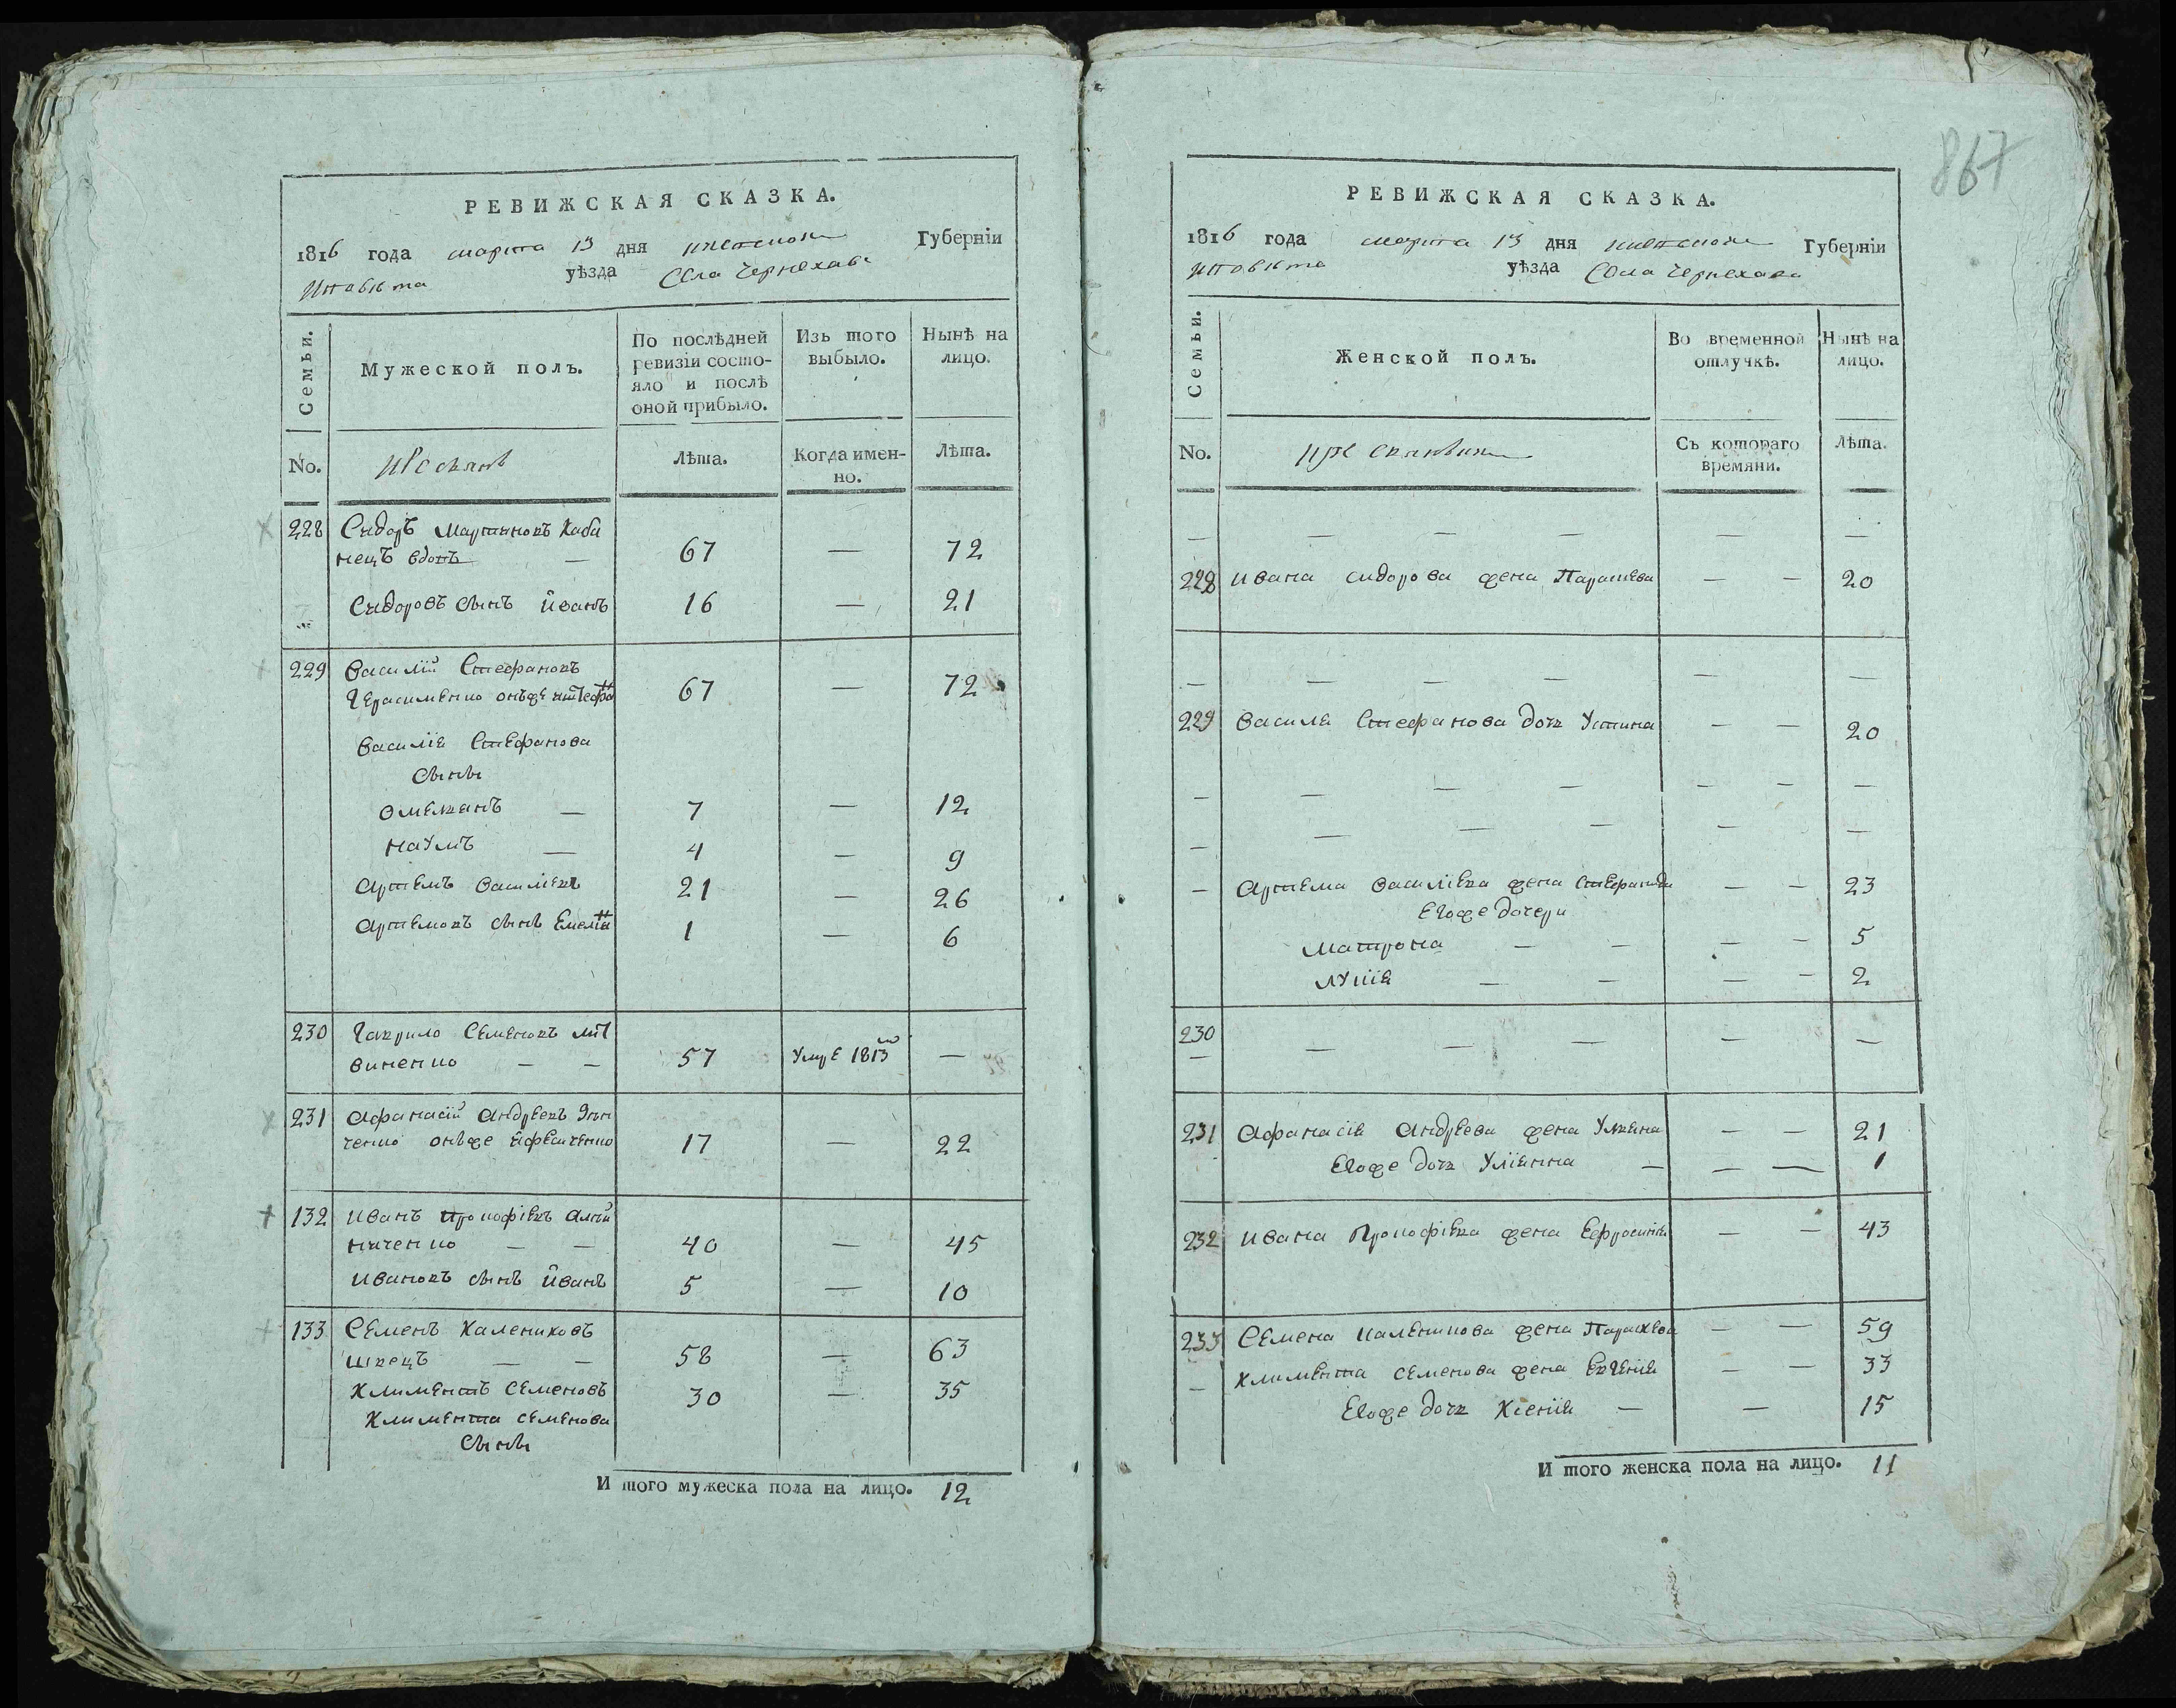 867
РЕВИЖСКАЯ СКАЗКА.
1816 года марта 13 дня Губерніи
уѣзда Села Чернехава
Семьи.
Мужеской полъ.
По послѣдней ревизіи состояло и послѣ оной прибыло.
Изъ того выбыло.
Нынѣ на лицо.
No.
Лѣта.
Когда именно.
Лѣта.
228 Сидоръ Мартиновъ Каба
нецъ вдовъ — 67 — 72
Сидоровъ сынъ Иванъ 16 — 21
229 Василій Стефановъ
Герасименко онъже 67 — 72
Василія Стефанова
сыны
Омелянъ — 7 — 12
Наумъ — 4 — 9
Артемъ Василіевъ 21 — 26
Артемовъ сынъ Емелiа 1 — 6
230 Гаврило Семеновъ Лит
виненко — — 57 Умре 1813 —
231 Афанасій Андреевъ
ченко онъже 17 — 22
132 Иванъ Прокофіевъ
ниченко — — 40 — 45
Ивановъ сынъ Иванъ 5 — 10
133 Семенъ Калениковъ
Швецъ — — 58 — 63
Климентъ Семеновъ 30 — 35
Климента Семенова
сыны
И того мужеска пола на лицо. 12
РЕВИЖСКАЯ СКАЗКА.
1816 года марта 13 дня Губерніи
уѣзда Села Чернехава
Семьи.
Женской полъ.
Во временной отлучкѣ.
Нынѣ на лицо.
No.
Съ котораго времяни.
Лѣта.
— — — — — —
228 Ивана Сидорова жена Парасꙗева — — 20
— — — — — —
229 Василя Стефанова дочь Устина — — 20
— — — — — — —
— — — — — —
— Артема Василіева жена Стефанида — — 23
Егоже дочери
Матрона — — — — 5
Лукія — — — — 2
230
— — — — — —
231 Афанасія Андреева жена Уляна — — 21
Егоже дочь Уліянна — — — 1
232 Ивана Прокофіева жена Ефросинія — — 43
233 Семена Каленикова жена Параскева — — 59
— Климента Семенова жена Евгенія — — 33
Егоже дочь Ксенія — — 15
И того женска пола на лицо. 11